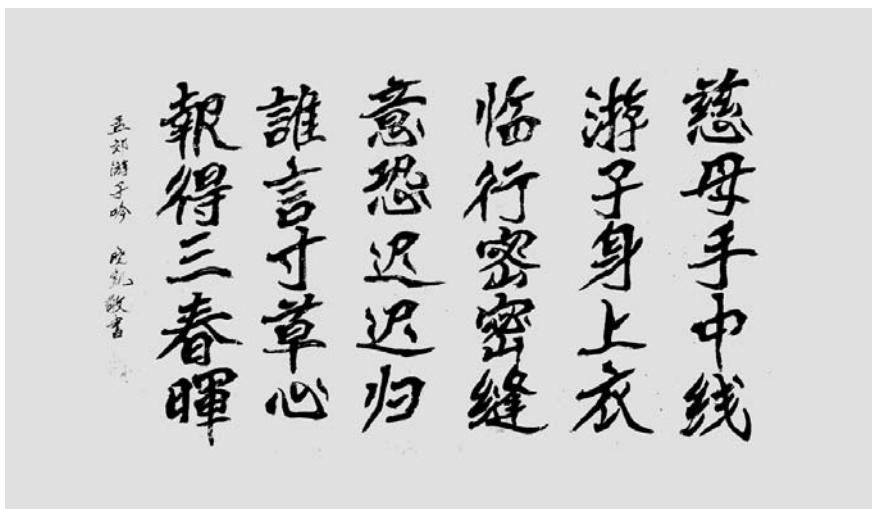 慈母手中线
游子身上衣
临行密密缝
意恐迟迟归
誰言寸草心
報得三春暉
孟郊游子吟 晓凯敬书